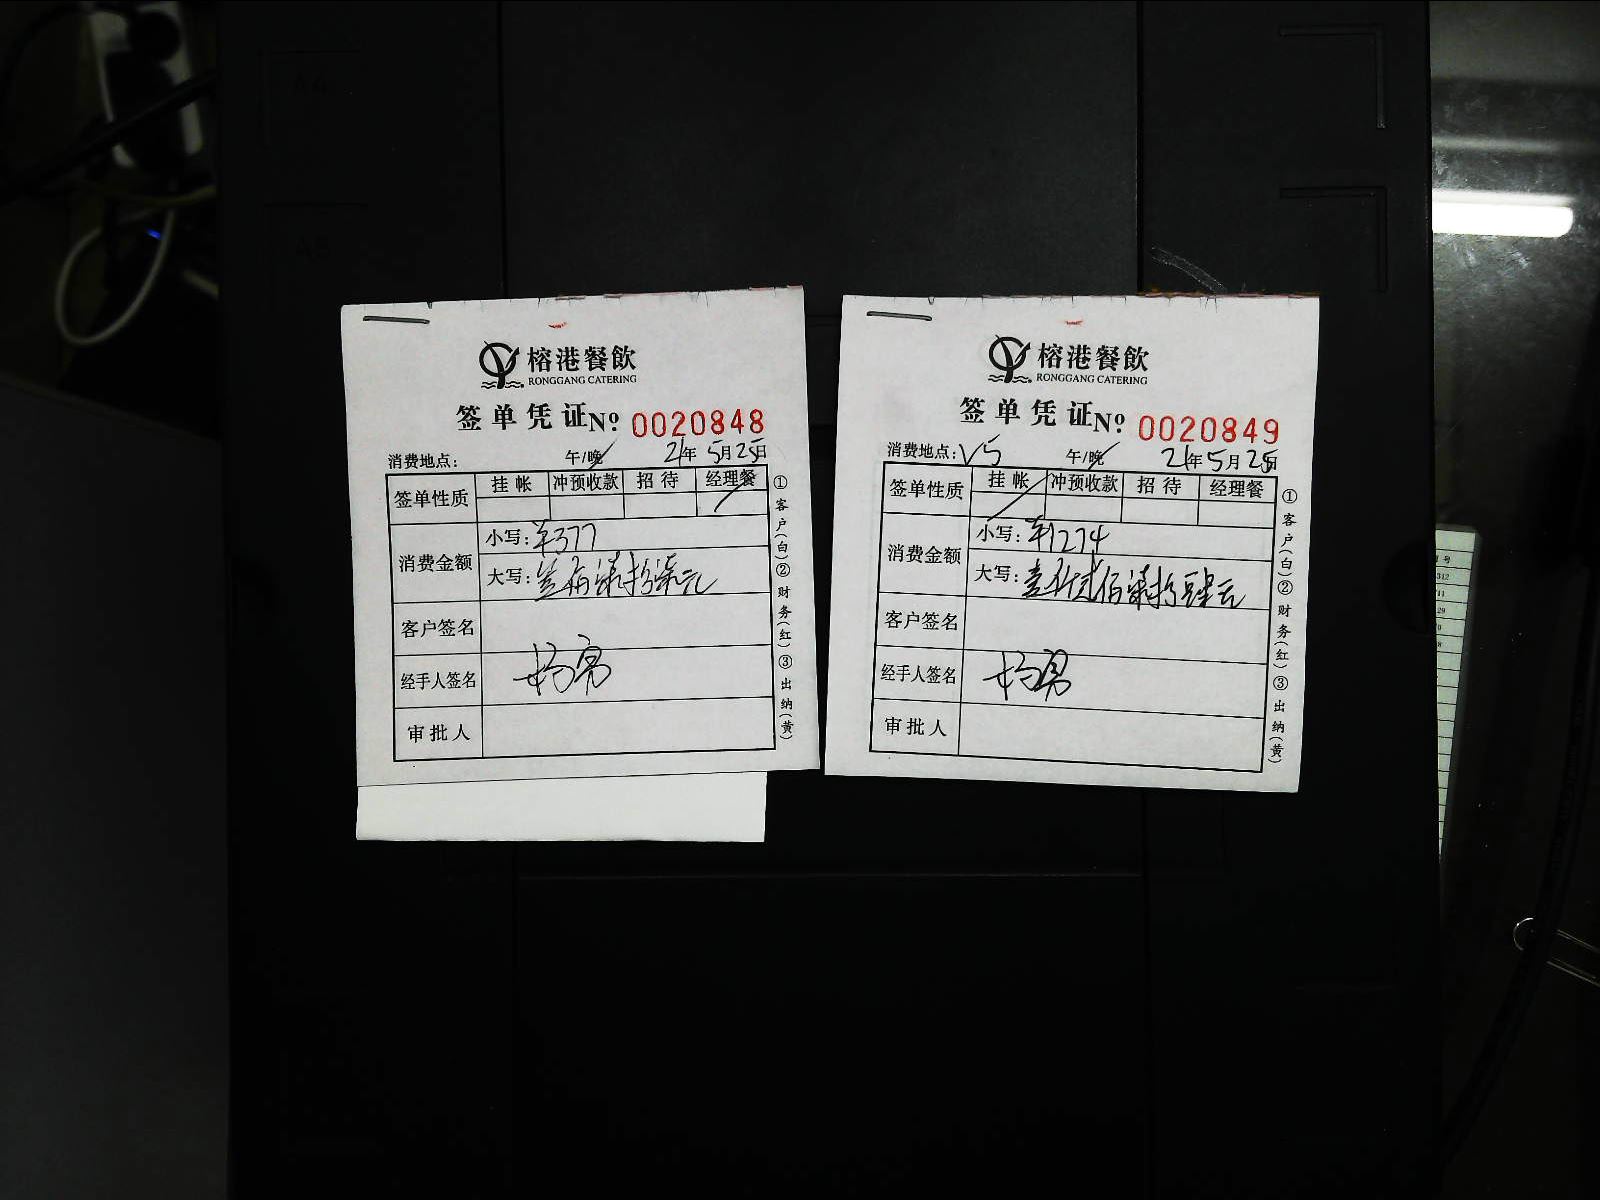 榕港餐飲
RONGGANG CATERING
签单凭证№ 0020848
消费地点: 午/晚 21年5月25日
签单性质 挂帐 冲预收款 招待 经理餐
消费金额 小写:¥377
大写:叁佰柒拾柒元
客户签名
经手人签名
审批人
①客户(白)②财务(红)③出纳(黄)
榕港餐飲
RONGGANG CATERING
签单凭证№ 0020849
消费地点:V5 午/晚 21年5月25日
签单性质 挂帐 冲预收款 招待 经理餐
消费金额 小写:¥1274
大写:壹仟贰佰柒拾肆元
客户签名
经手人签名
审批人
①客户(白)②财务(红)③出纳(黄)